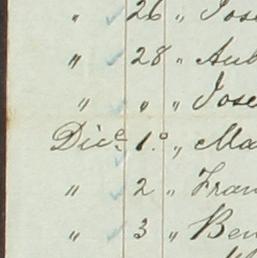 " 26 " Jose
" 28 " Aub
" " " Jose
Dice 1.º " Ma
" 2 " Fran
" 3 " Ben